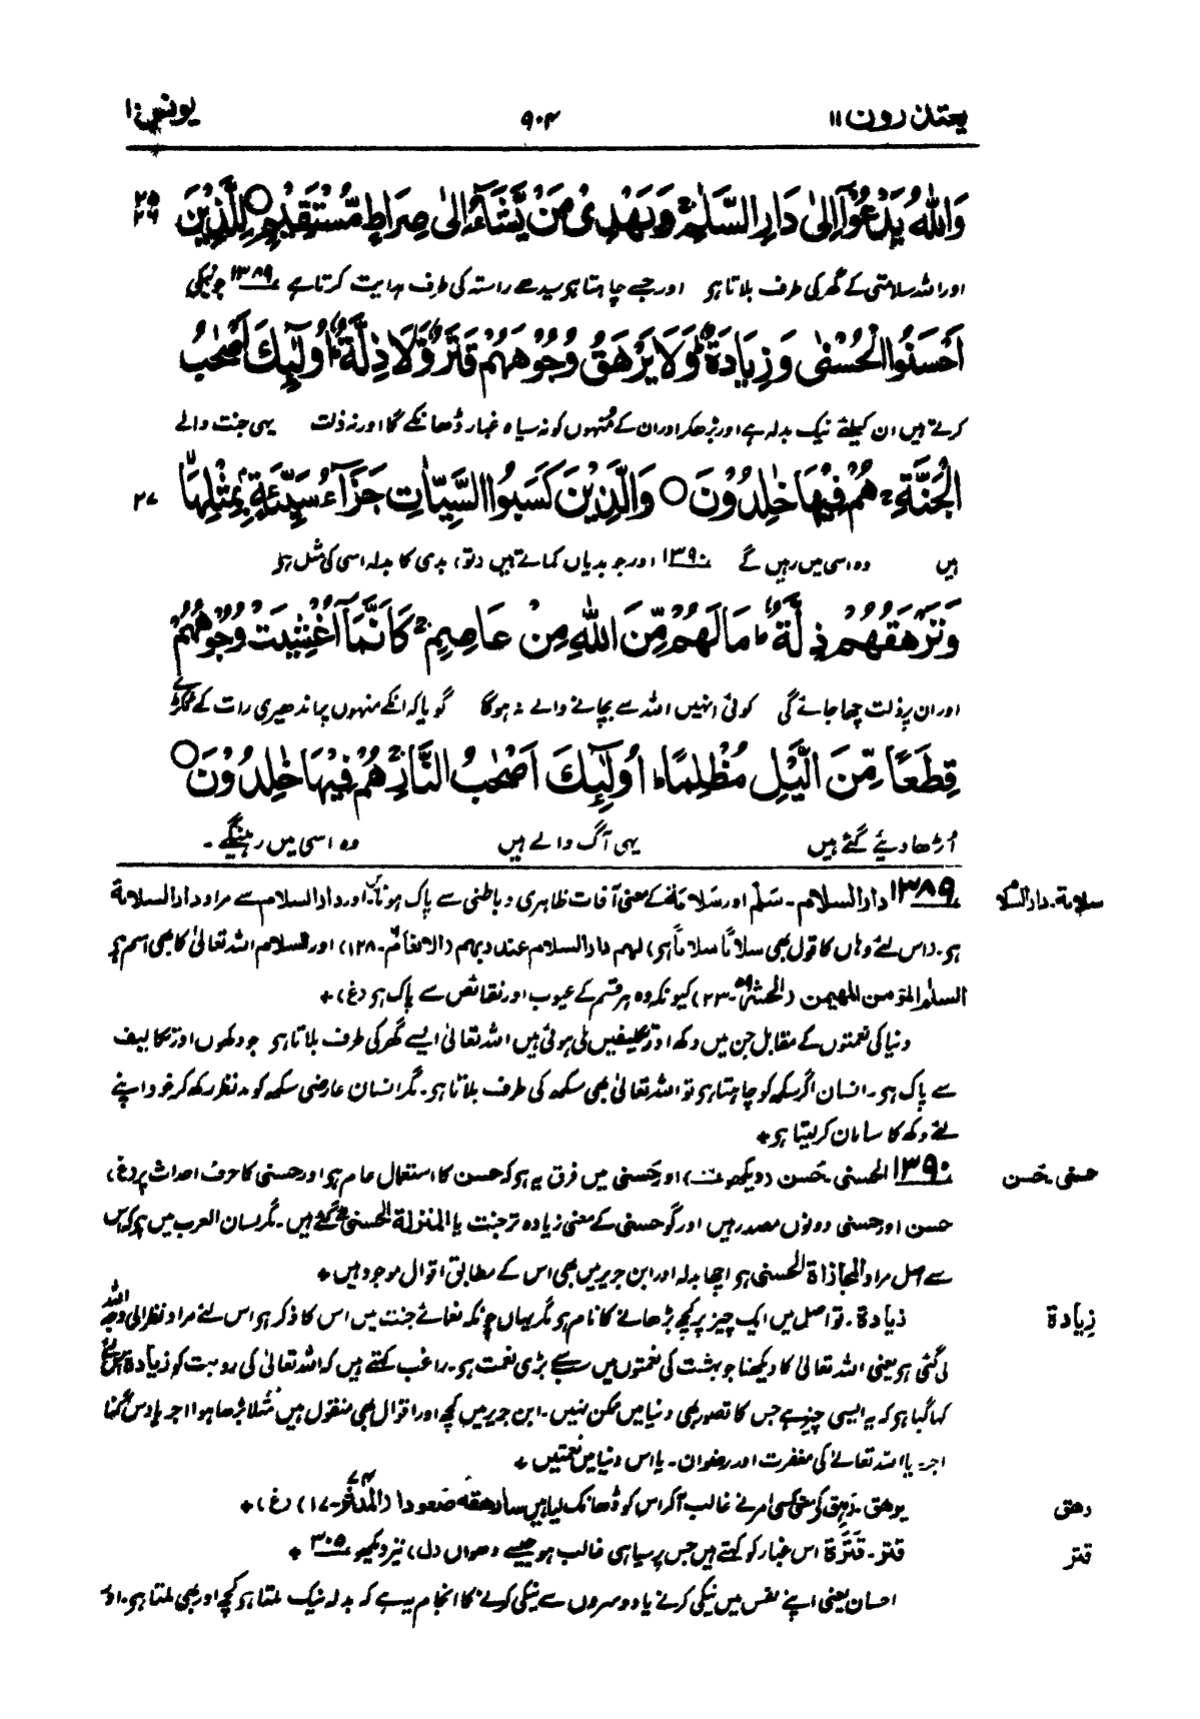 یعتذرون ۱۱ ۹۰۴ یونس ۱۰
وَاللّٰهُ يَدْعُوْٓا اِلٰى دَارِ السَّلٰمِ ؕ وَيَهْدِىْ مَنْ يَّشَآءُ اِلٰى صِرَاطٍ مُّسْتَقِيْمٍ ○ لِلَّذِيْنَ ۲۵ ۲۶
اور اللہ سلامتی کے گھر کی طرف بلاتا ہو اور جسے چاہتا ہو سیدھے راستہ کی طرف ہدایت کرتا ہے ۱۳۸۹ جو نیکی
اَحْسَنُوا الْحُسْنٰى وَزِيَادَةٌ ؕ وَلَا يَرْهَقُ وُجُوْهَهُمْ قَتَرٌ وَّلَا ذِلَّةٌ ؕ اُولٰٓئِكَ اَصْحٰبُ
کرتے ہیں ان کیلئے نیک بدلہ ہے اور بڑھکر اور ان کے مُنہوں کو نہ سیاہ غبار ڈھانکے گا اور نہ ذلت یہی جنت والے
الْجَنَّةِ ۚ هُمْ فِيْهَا خٰلِدُوْنَ ○ وَالَّذِيْنَ كَسَبُوا السَّيِّاٰتِ جَزَآءُ سَيِّئَةٍ ۭ بِمِثْلِهَا ۙ ۲۷
ہیں وہ اسی میں رہیں گے ۱۳۹۰ اور جو بدیاں کماتے ہیں (تو) بدی کا بدلہ اسی کی مثل ہو
وَتَرْهَقُهُمْ ذِلَّةٌ ؕ مَا لَهُمْ مِّنَ اللّٰهِ مِنْ عَاصِمٍ ۚ كَاَنَّمَآ اُغْشِيَتْ وُجُوْهُهُمْ
اور ان پر ذلت چھا جائے گی کوئی انہیں اللہ سے بچانے والے نہ ہوگا گویا کہ انکے منہوں پر اندھیری رات کے ٹکڑے
قِطَعًا مِّنَ الَّيْلِ مُظْلِمًا ؕ اُولٰٓئِكَ اَصْحٰبُ النَّارِ ۚ هُمْ فِيْهَا خٰلِدُوْنَ ○
اُڑھا دیئے گئے ہیں یہی آگ والے ہیں وہ اسی میں رہینگے۔
سلامة۔ دار السلام ۱۳۸۹ دار السلام۔ سَلْم اور سَلامَة کے معنی آفات ظاہری و باطنی سے پاک ہونا ہیں اور دار السلام سے مراد دار السلامة
ہو۔ (اس لئے وہاں کا قول بھی سلامًا سلامًا ہو) لہم دار السلام عند ربہم (الانعامؑ۔ ۱۲۸) اور السلام اللہ تعالیٰ کا بھی اسم ہو
السلٰم المؤمن المھیمن (الحشر ۵۹۔ ۲۳) کیونکہ وہ ہر قسم کے عیوب اور نقائص سے پاک ہو (غ)+
دنیا کی نعمتوں کے مقابل جن میں دکھ اور تکلیفیں ملی ہوئی ہیں اللہ تعالیٰ ایسے گھر کی طرف بلاتا ہو جو دکھوں اور تکالیف
سے پاک ہو۔ انسان اگر سکھ کو چاہتا ہو تو اللہ تعالیٰ بھی سکھ کی طرف بلاتا ہو۔ مگر انسان عارضی سکھ کو مد نظر رکھ کر خود اپنے
لئے دکھ کا سامان کر لیتا ہو+
حسنی۔ حسن ۱۳۹۰ الحسنی۔ حُسن (دیکھو) اور حُسنی میں فرق یہ ہو کہ حسن کا استعمال عام ہو اور حسنی کا صرف احداث پر (غ)
حسن اور حسنی دونوں مصدر ہیں اور گو حسنی کے معنی زیادہ تر جنت یا المنزلة الحسنی کئے گئے ہیں۔ مگر لسان العرب میں ہو کہ اس
سے اصل مراد المجازاة الحسنی ہو اچھا بدلہ اور ابن جریر میں بھی اس کے مطابق اقوال موجود ہیں+
زِیادة زیادة۔ تو اصل میں ایک چیز پر کچھ بڑھانے کا نام ہو مگر یہاں چونکہ نعمائے جنت میں اس کا ذکر ہو اس لئے مراد نظر الی وجہ اللہ
لی گئی ہو یعنی اللہ تعالیٰ کا دیکھنا جو بہشت کی نعمتوں میں سب سے بڑی نعمت ہو۔ راغب کہتے ہیں کہ اللہ تعالیٰ کی رویت کو زیادة اس لئے
کہا گیا ہو کہ یہ ایسی چیز ہے جس کا تصور بھی دنیا میں ممکن نہیں۔ ابن جریر میں کچھ اور اقوال بھی منقول ہیں مثلاً بڑھا ہوا اجر یا دس گنا
اجر۔ یا اللہ تعالے کی مغفرت اور رضوان۔ یا اس دنیا میں نعمتیں+
رھق یرھق۔ رَہِق کے معنی کسی امر نے غالب آکر اس کو ڈھانک لیا ہیں سارھقہ صَعودا (المدثر ۷۴۔ ۱۷) (غ)+
قتر قتر۔ قَتَرَة اس غبار کو کہتے ہیں جس پر سیاہی غالب ہو جیسے دھواں (ل) نیز دیکھو ۳۰۵+
احسان یعنی اپنے نفس میں نیکی کرنے یا دوسروں سے نیکی کرنے کا انجام یہ ہے کہ بدلہ نیک ملتا ہو کچھ اور بھی ملتا ہو۔ اور